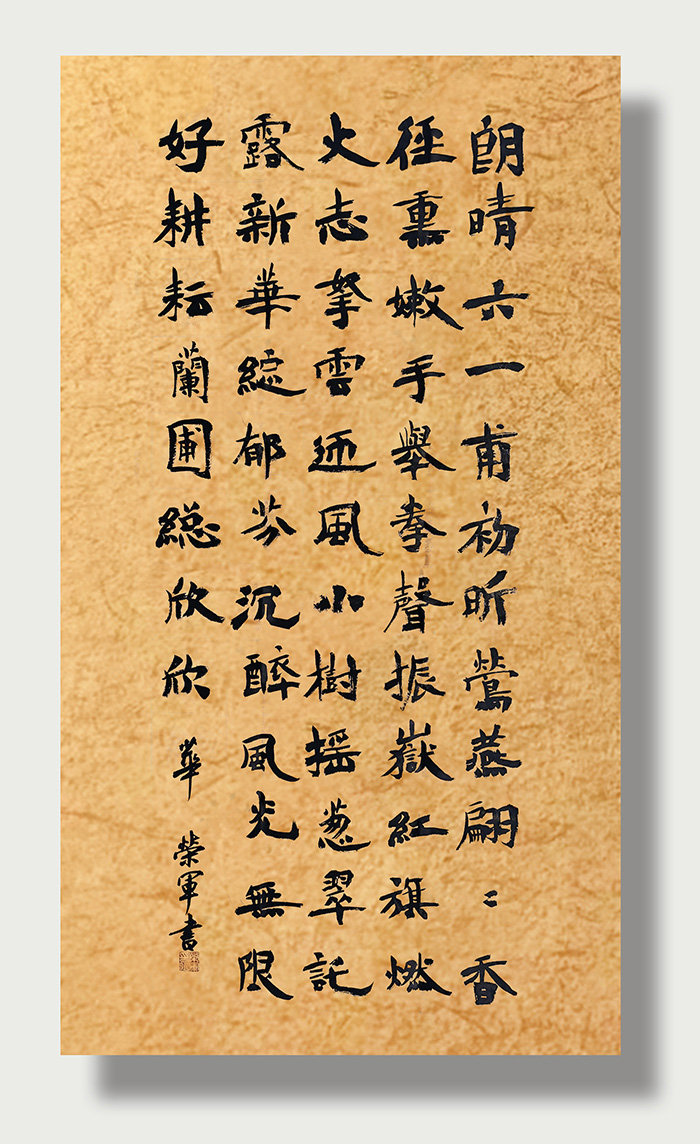 朗晴六一甫初昕鶯燕翩〻香
徑熏嫩手舉拳聲振嶽紅旗燃
火志拏雲迊風小樹摇葱翠託
露新華綻郁芬沉醉風光無限
好耕耘蘭圃總欣欣
華榮軍書